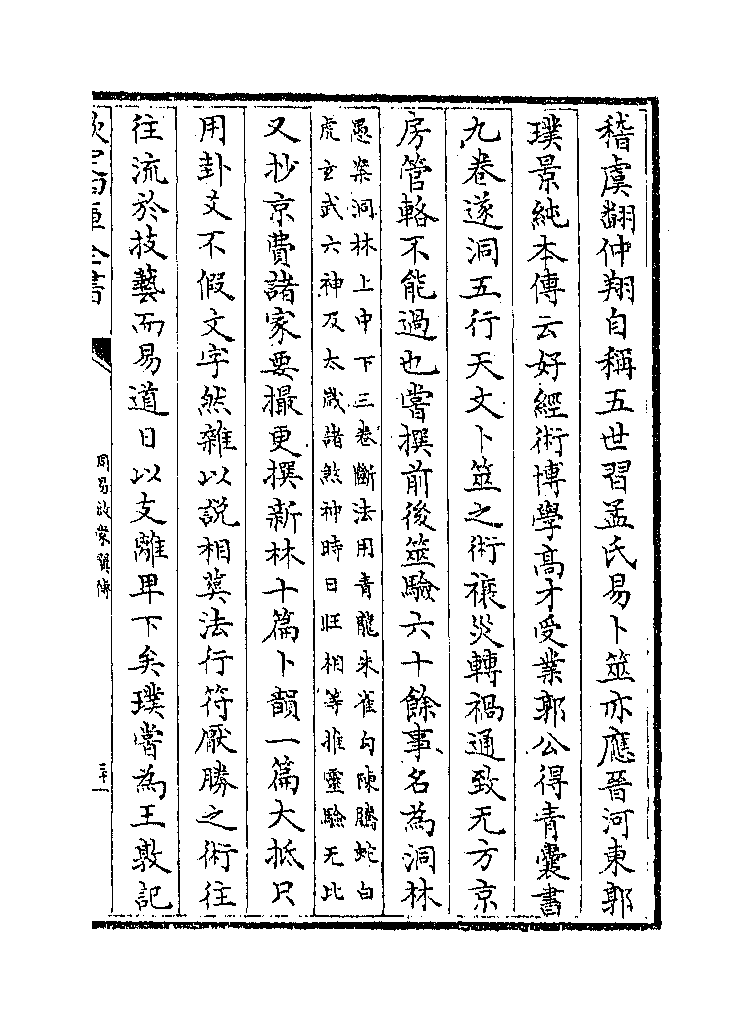 稽虞翻仲翔自稱五世習孟氏易卜筮亦應晉河東郭
璞景純本傳云好經術博學高才受業郭公得青囊書
九卷遂洞五行天文卜筮之術禳災轉禍通致无方京
房管輅不能過也嘗撰前後筮驗六十餘事名為洞林
愚案洞林上中下三卷斷法用青龍朱雀勾陳騰蛇白
虎玄武六神及太歲諸煞神時日旺相等推靈驗无比
又抄京費諸家要撮更撰新林十篇卜韻一篇大抵只
用卦爻不假文字然雜以説相冥法行符厭勝之術往
往流於技藝而易道日以支離卑下矣璞嘗為王敦記
欽定四庫全書
周易啟蒙翼傳
三十一